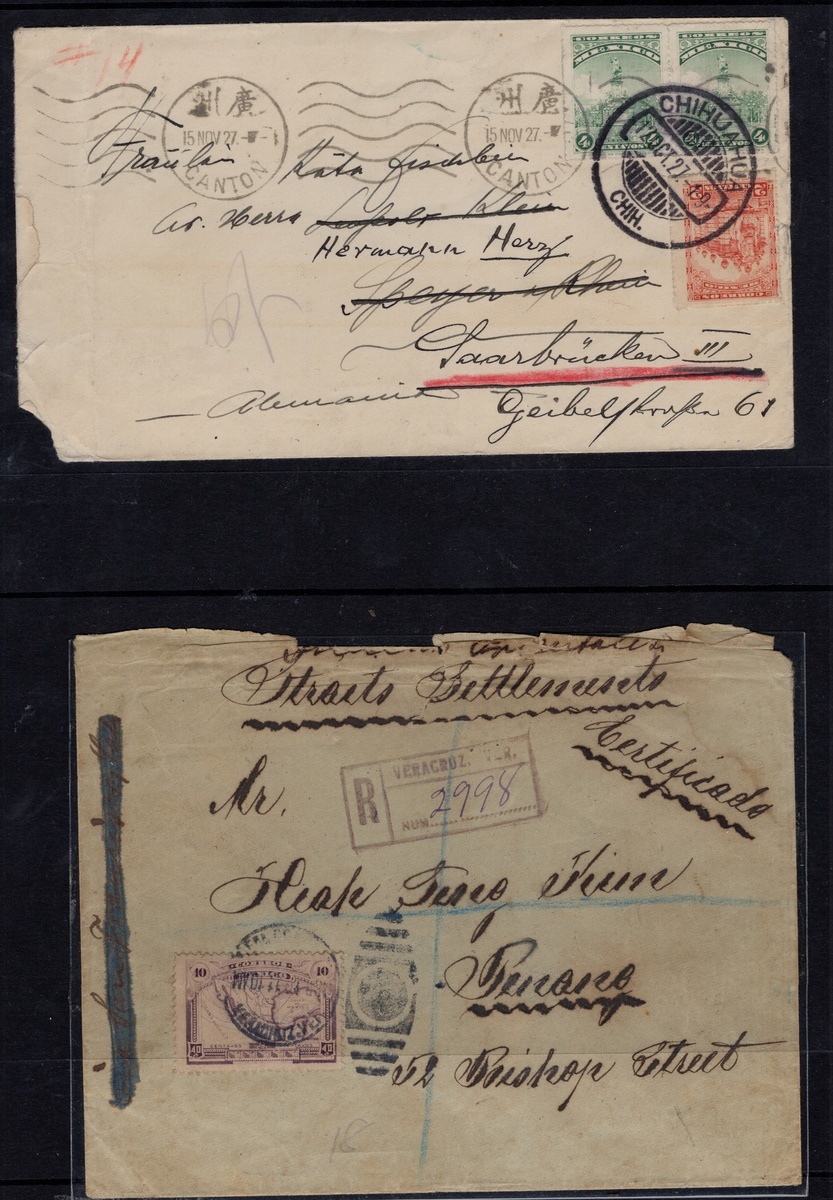 #14
廣州
15 NOV 27.-V-
CANTON
廣州
15 NOV 27.-V-
CANTON
CORREOS
MEXICO
4
CORREOS
MEXICO
4
CHIHUAHUA
17 OCT. 27.
CHIH.
CORREOS
Fräulein Käta Fischbein
Herrn Leopold Klein
Hermann Herz
Speyer a/Rhein
Saarbrücken III
Alemania
Geibelstraße 61
Straits Settlements
Certificado
R
VERACRUZ, VER.
NUM. 2998
Mr.
Heap Teng Kim
Penang
52 Bishop Street
10
MEXICO
10
18